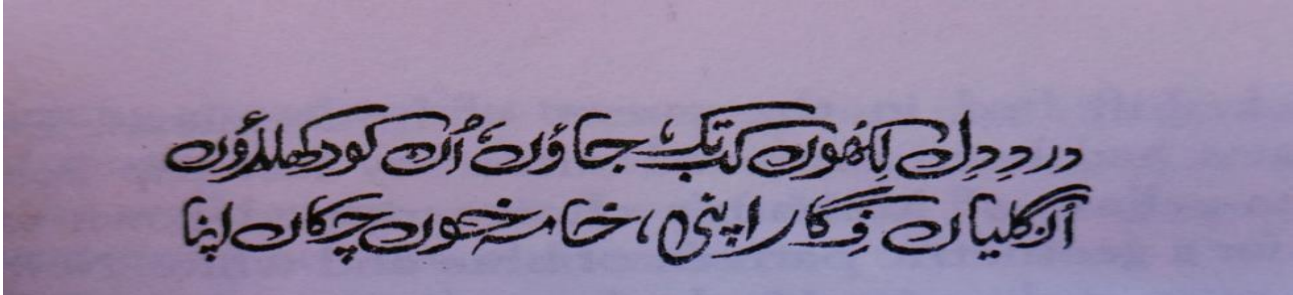 دردِ دِل لِکھوں کب تک، جاؤں، اُن کو دکھلاؤں
اُنگلیاں فِگار اپنی، خامہ خوں چکاں اپنا